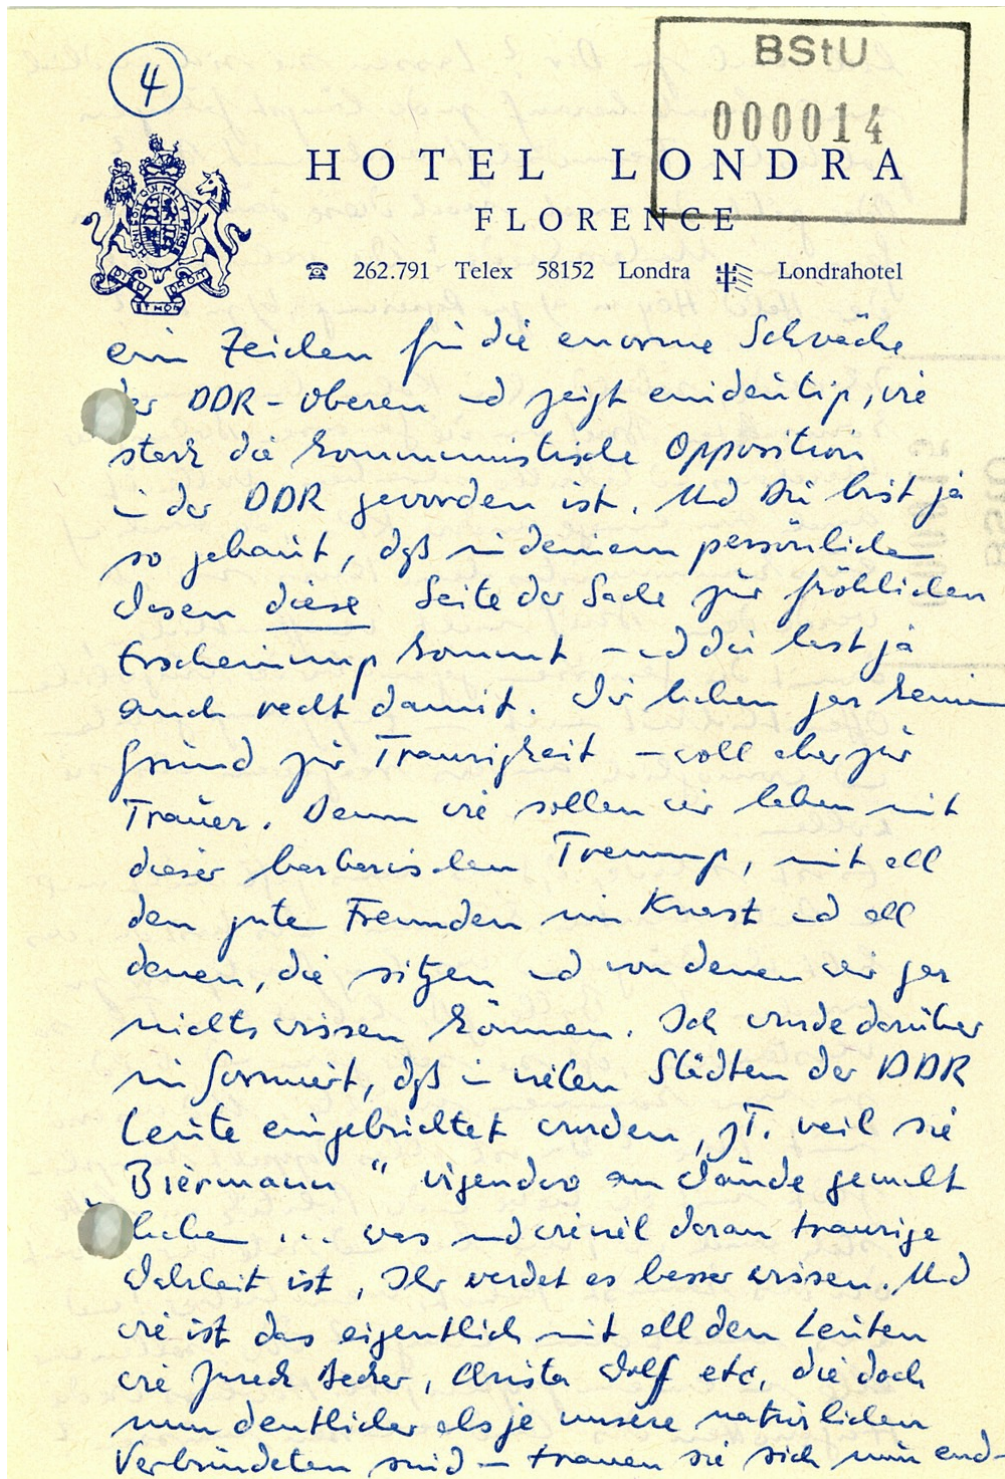 4
BStU
000014
HOTEL LONDRA
FLORENCE
☎ 262.791 Telex 58152 Londra Londrahotel
ein Zeichen für die enorme Schwäche
der DDR-Oberen und zeigt eindeutig, wie
stark die kommunistische Opposition
in der DDR geworden ist. Und Du bist ja
so gebaut, daß in deinem persönlichen
Wesen diese Seite der Sache zur fröhlichen
Erscheinung kommt – und du hast ja
auch recht damit. Wir haben gar keinen
Grund zur Traurigkeit – wohl aber zur
Trauer. Denn wie sollen wir leben mit
dieser barbarischen Trennung, mit all
den guten Freunden im Knast und all
denen, die sitzen und von denen wir gar
nichts wissen können. Ich wurde darüber
informiert, daß in vielen Städten der DDR
Leute eingebuchtet wurden, zT. weil sie
"Biermann" irgendwo an Wände gemalt
haben ... was und wieviel daran traurige
Wahrheit ist, Ihr werdet es besser wissen. Und
wie ist das eigentlich mit all den Leuten
wie Jurek Becker, Christa Wolf etc, die doch
nun deutlicher als je unsere natürlichen
Verbündeten sind – trauen sie sich nun end-